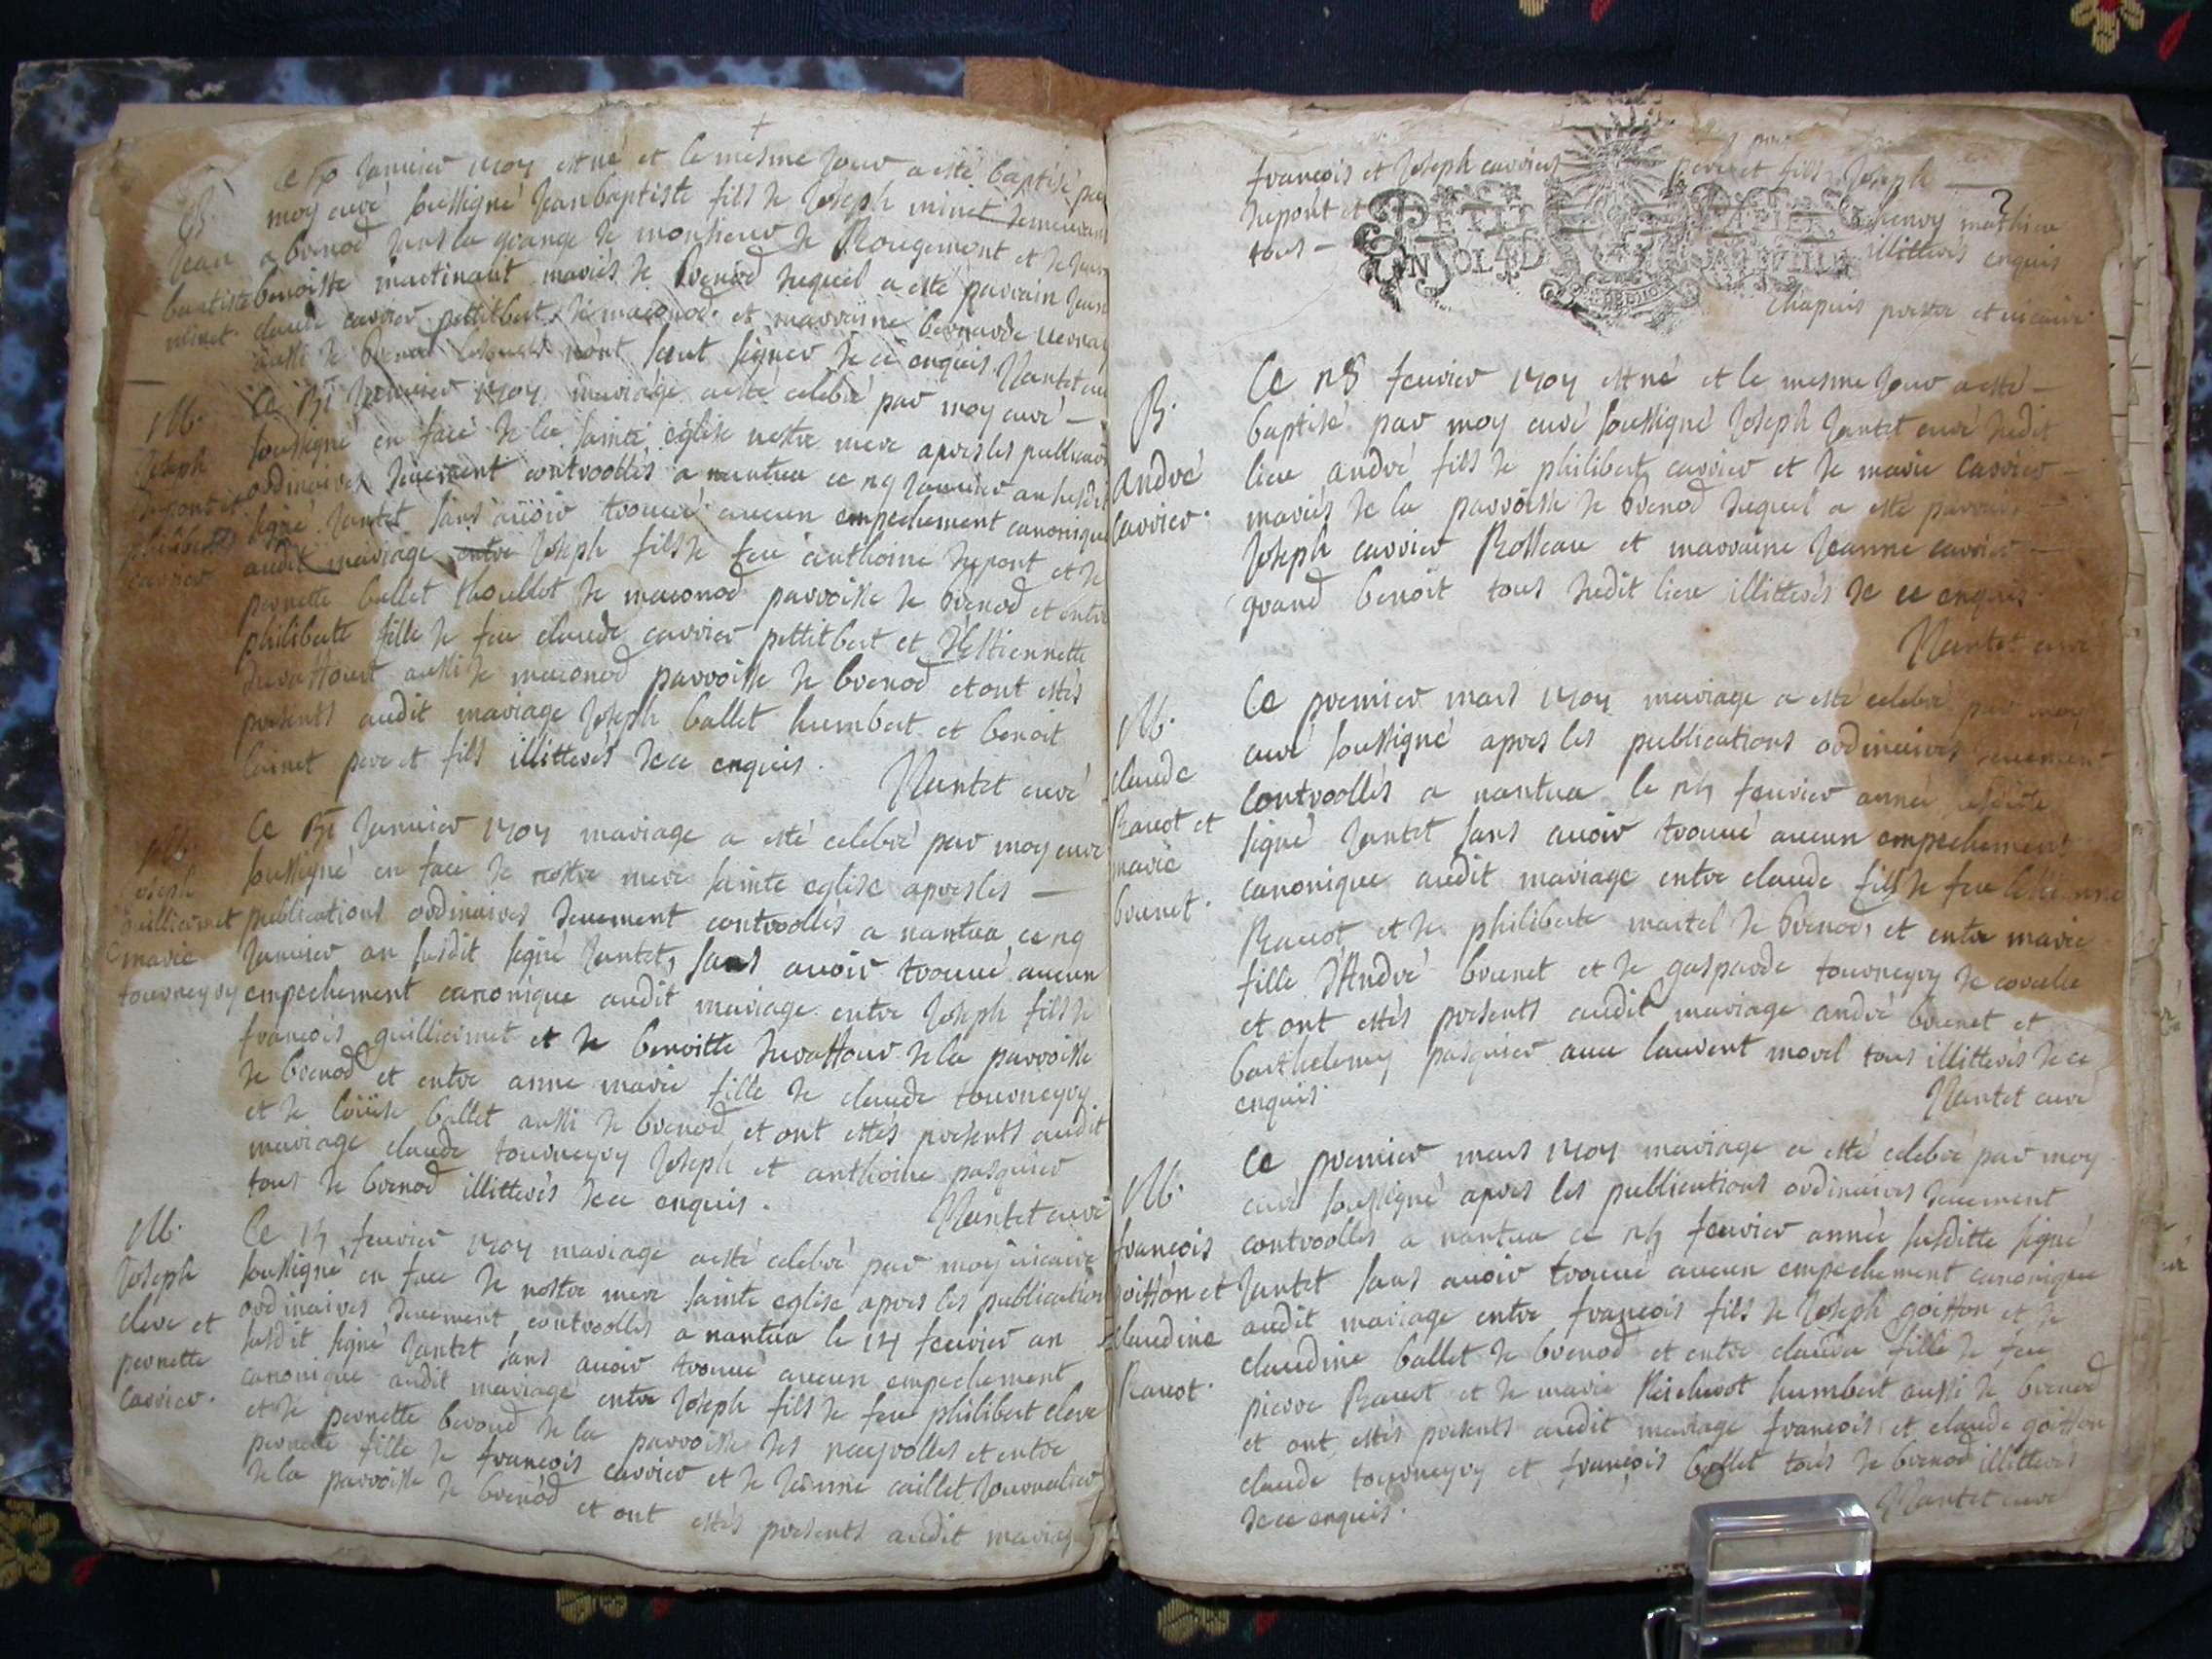 janvier 1704 est né et le mesme jour a esté baptisé par
B.
moy curé soussigné Jean baptiste fils de Joseph minet demeurant
Jean
a brenod dans la grange de monsieur de Rougemont et de
baptiste
benoiste martinant mariés de brenod duquel a esté parrain
minet.
claude carrier pettitbert de maconod et marraine bernarde
aussi de brenod lesquels nont sceut signer de ce enquis. Nantet curé
M.
Joseph
dupont et
philiberte
carrier
Ce janvier 1704 mariage a esté celebré par moy curé
soussigné en face de la sainte eglise nostre mere apres les publications
ordinaires deuement controollés a nantua ce 29 janvier an susdit
signé Jantet sans auoir trouué aucun empechement canonique
audit mariage entre Joseph fils de feu anthoine dupont et de
pernette ballet de maconod parroisse de brenod et entre
philiberte fille de feu claude carrier pettitbert et d'Estiennette
aussi de maconod parroisse de brenod et ont estés
presents audit mariage Joseph ballet humbert et benoit
pere et fils illitterés de ce enquis.
Nantet curé
M.
Joseph
guilliermet
marie
tournegry
Ce janvier 1704 mariage a esté celebré par moy curé
soussigné en face de nostre mere sainte eglise apres les
publications ordinaires deuement controollés a nantua ce 29
janvier an susdit signé Jantet, sans auoir trouué aucun
empechement canonique audit mariage entre Joseph fils de
françois guilliermet et de benoitte de la parroisse
de brenod et entre anne marie fille de claude tournegry
et de loüise ballet aussi de brenod et ont estés presents audit
mariage claude tournegry Joseph et anthoine pasquier
tous de brenod illitterés de ce enquis.
Nantet curé
M.
Joseph
clere et
pernette
carrier.
Ce feurier 1704 mariage a esté celebré par moy vicaire
soussigné en face de nostre mere sainte eglise apres les publications
ordinaires deuement controollés a nantua le 14 feurier an
susdit signé Jantet sans auoir trouué aucun empechement
canonique audit mariage entre Joseph fils de feu philibert clere
et de pernette beroud de la parroisse des neyrolles et entre
pernette fille de françois carrier et de Jeanne caillet
de la parroisse de brenod et ont estés presents audit mariage
françois et Joseph carrier pere et fils Joseph
dupont et mathieu
tous illitterés enquis
PETIT PAPIER
UN SOL 4 D
Chapuis prestre et vicaire.
B.
André
carrier.
Ce 28 feurier 1704 est né et le mesme jour a esté
baptisé par moy curé soussigné Joseph Jantet curé dudit
lieu andré fils de philibert carrier et de marie carrier
mariés de la parroisse de brenod duquel a esté parrain
Joseph carrier Rosseau et marraine Jeanne carrier
grand benoit tous dudit lieu illitterés de ce enquis.
Nantet curé
M.
claude
Rauot et
marie
brunet.
Ce premier mars 1704 mariage a esté celebré par moy
curé soussigné apres les publications ordinaires deuement
controollés a nantua le 24 feurier année susditte
signé Jantet sans auoir trouué aucun empechement
canonique audit mariage entre claude fils de feu Estienne
Rauot et de philiberte martel de brenod, et entre marie
fille d'André brunet et de gasparde tournegry de corcelle
et ont estés presents audit mariage andré brunet et
barthelemy pasquier auec laurent morel tous illitterés de ce
enquis.
Nantet curé
M.
françois
goiffon et
claudine
Rauot.
Ce premier mars 1704 mariage a esté celebré par moy
curé soussigné apres les publications ordinaires deuement
controollés a nantua ce 24 feurier année susditte signé
Jantet sans auoir trouué aucun empechement canonique
audit mariage entre françois fils de Joseph goiffon et de
claudine ballet de brenod et entre clauda fille de feu
pierre Rauot et de marie humbert aussi de brenod
et ont estés presents audit mariage françois et claude goiffon
claude tournegry et françois ballet tous de brenod illitterés
de ce enquis.
Nantet curé